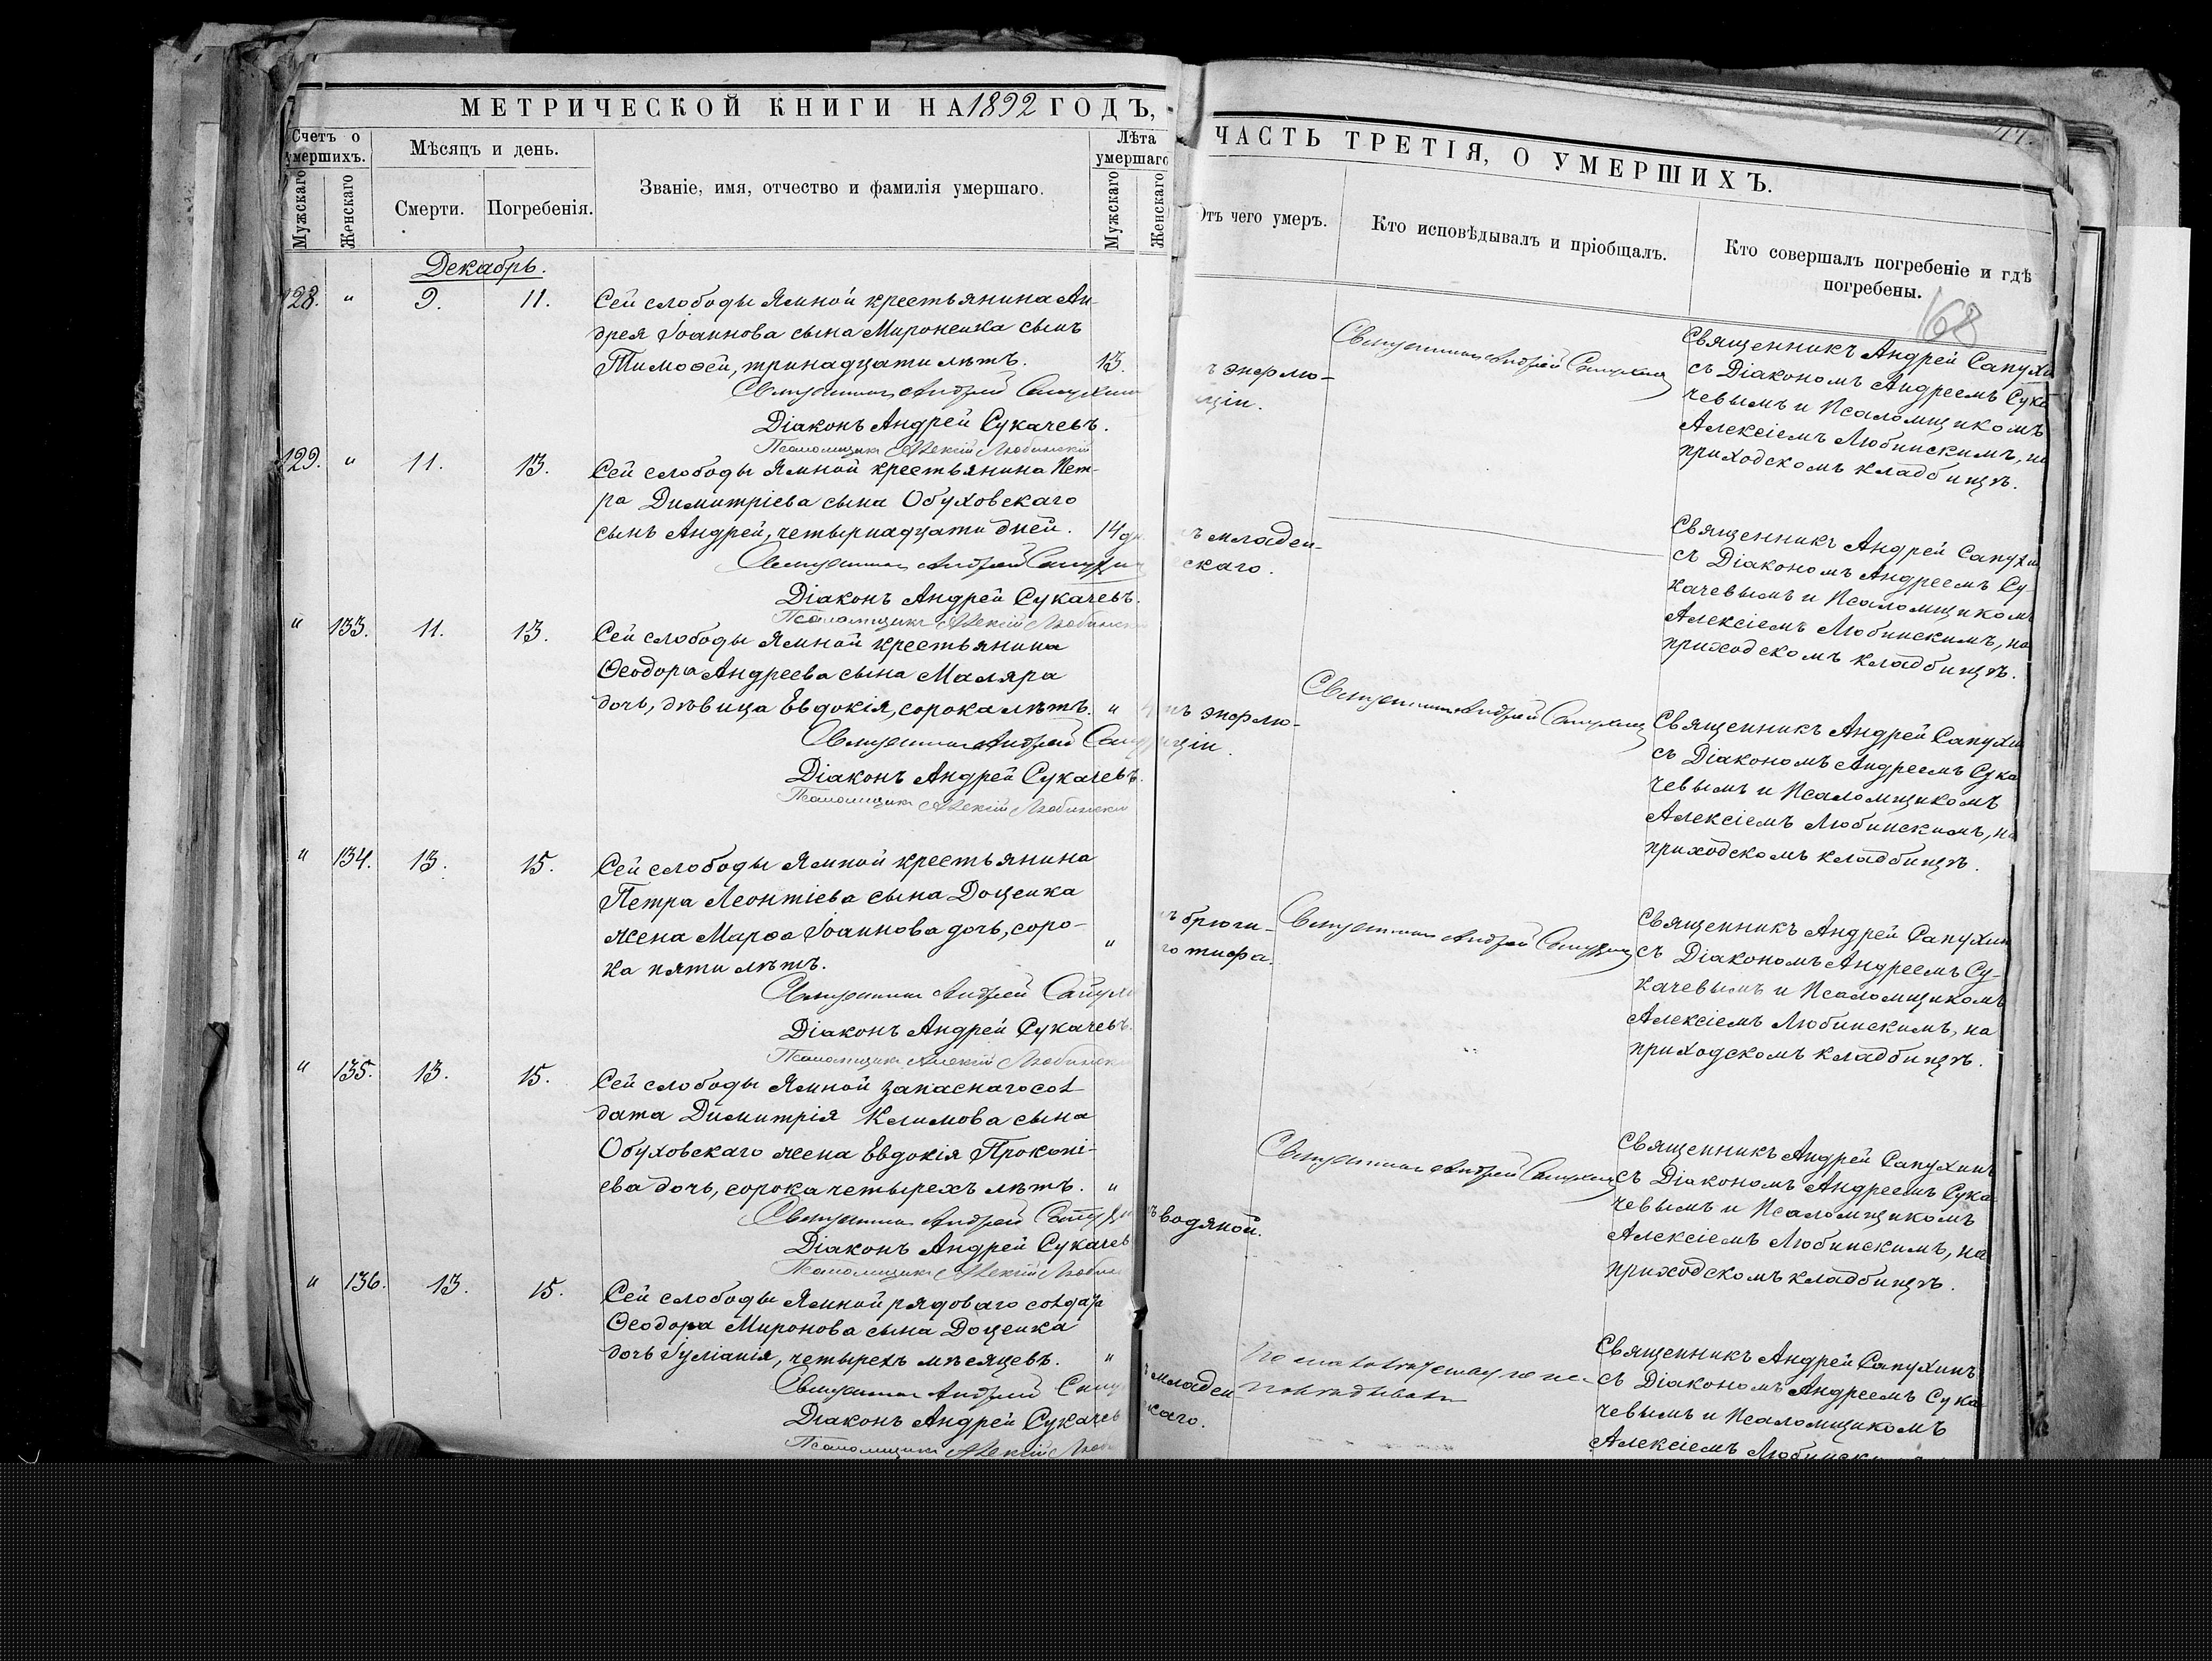 МЕТРИЧЕСКОЙ КНИГИ НА 1892 ГОДЪ,
Счетъ о умершихъ.
Мужскаго
Женскаго
Мѣсяцъ и день.
Смерти.
Погребенія.
Званіе, имя, отчество и фамилія умершаго.
Лѣта умершаго
Мужскаго
Женскаго
Декабрь.
128. " 9. 11. Сей слободы Ямной крестьянина Ан-
дрея Іоаннова сына Мироненка сынъ
Тимоѳей, тринадцати лѣтъ. 13.
Священникъ Андрей Сапухин
Діаконъ Андрей Сукачевъ.
Псаломщикъ Алексій Любинскій
129. " 11. 13. Сей слободы Ямной крестьянина Пет-
ра Димитріева сына Обуховскаго
сынъ Андрей, четырнадцати дней. 14 дн
Священникъ Андрей Сапухин
Діаконъ Андрей Сукачевъ.
Псаломщикъ Алексій Любинск
" 133. 11. 13. Сей слободы Ямной крестьянина
Ѳеодора Андреева сына Маляра
дочь, дѣвица Евдокія, сорока лѣтъ. "
Священникъ Андрей Сап
Діаконъ Андрей Сукачевъ.
Псаломщикъ Алексій Любинскій
" 134. 13. 15. Сей слободы Ямной крестьянина
Петра Леонтіева сына Доценка
жена Марѳа Іоаннова дочь, соро-
ка пяти лѣтъ. "
Священникъ Андрей Сапухи
Діаконъ Андрей Сукачевъ.
Псаломщикъ Алексій Любинск
" 135. 13. 15. Сей слободы Ямной запаснаго сол-
дата Димитрія Климова сына
Обуховскаго жена Евдокія Прокопі-
ева дочь, сорока четырехъ лѣтъ. "
Священникъ Андрей Сапухи
Діаконъ Андрей Сукачев
Псаломщикъ Алексій Любин
" 136. 13. 15. Сей слободы Ямной рядоваго солдата
Ѳеодора Миронова сына Доценка
дочь Іуліанія, четырехъ мѣсяцевъ. "
Священникъ Андрей Сапу
Діаконъ Андрей Сукачев
Псаломщикъ Алексій Люби
ЧАСТЬ ТРЕТІЯ, О УМЕРШИХЪ.
Отъ чего умеръ.
Кто исповѣдывалъ и пріобщалъ.
Кто совершалъ погребеніе и гдѣ
погребены.
168
ъ энфлю-
нціи.
Священникъ Андрей Сапухинъ
Священникъ Андрей Сапухи
съ Діакономъ Андреемъ Сука
чевымъ и Псаломщикомъ
Алексіемъ Любинскимъ, на
приходскомъ кладбищѣ.
ъ младен-
скаго.
Священникъ Андрей Сапухи
съ Діакономъ Андреемъ Су-
качевымъ и Псаломщикомъ
Алексіемъ Любинскимъ, на
приходскомъ кладбищѣ.
нъ энфлю-
нціи.
Священникъ Андрей Сапухинъ
Священникъ Андрей Сапухин
съ Діакономъ Андреемъ Сука
чевымъ и Псаломщикомъ
Алексіемъ Любинскимъ, на
приходскомъ кладбищѣ.
ъ брюш-
го тифа.
Священникъ Андрей Сапухинъ
Священникъ Андрей Сапухин
съ Діакономъ Андреемъ Су-
качевымъ и Псаломщикомъ
Алексіемъ Любинскимъ, на
приходскомъ кладбищѣ.
ъ водяной.
Священникъ Андрей Сапухинъ
Священникъ Андрей Сапухинъ
съ Діакономъ Андреемъ Сука
чевымъ и Псаломщикомъ
Алексіемъ Любинскимъ, на
приходскомъ кладбищѣ.
младен
каго.
Священникъ Андрей Сапухинъ
съ Діакономъ Андреемъ Сука
чевымъ и Псаломщикомъ
Алексіемъ Любинск